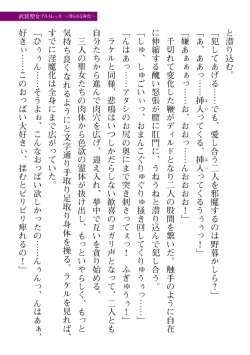 武装聖女
と潜り込む。
「犯してあげる……！　でも、愛し合う二人を邪魔するのは野暮かしら？」
「ぁ、ああっ……挿入ってくる、挿入ってくるぅ……！」
「嫌ぁぁぁぁっ……おおおお……んおおおお！」
千切れて変化した鞭がディルドとなり二人の股間を繋いだ。触手のように自在
に伸縮する醜い怒張が膣に肛門に、うねうねと潜り込んで犯し合う。
「しゅ、しゅごいぃ、おまんこぐりゅぐりゅ掻き回してくりゅぅぅっ……！」
「んはぁっ……アタシのお尻の奥にまで突き刺さってくるぅっ！　ふぎゅぅぅ！」
ラケルと同様、悲鳴はいつしかだらしない歓喜のヨガリ声となって、二人とも
自分たちから進んで肉穴を広げ、迎え入れ、夢中で互いを貪り始める。
三人の聖女たちの肉体から色欲の霊体が抜け出し、もっといやらしく、もっと
気持ち良くなれるようにと文字通り手取り足取り身体を操る。ラケルを見れば、
すでに淫魔化は全身にまで広がっていた。
「ひぅぅん……そうよぉ、こんなおっぱい欲しかったの……んぅんっ、んはぁぁ、
好きぃ……このおっぱい大好きぃ！　揉むとビリビリ痺れるの！」